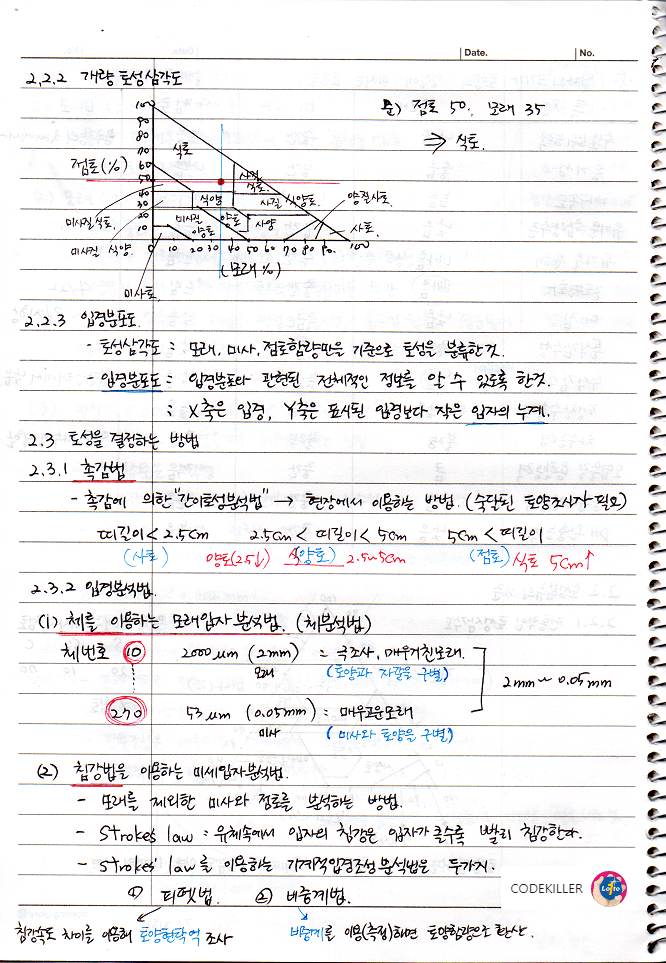 Date.
No.
2.2.2 개량 토성삼각도
문) 점토 50, 모래 35
⇒ 식토.
점토(%)
100
90
80
70
60
50
40
30
20
10
0
식토
사질
식토.
식양
사질 식양토.
양질사토.
미사질식토.
미사질
양토
양토
사양
사토.
미사질 식양.
10 20 30 40 50 60 70 80 90. 100
(모래%)
미사토.
2.2.3 입경분포도.
- 토성삼각도 : 모래, 미사, 점토함량만을 기준으로 토성을 분류한것.
- 입경분포도 : 입경분포와 관련된 전체적인 정보를 알 수 있도록 한것.
: X축은 입경, Y축은 표시된 입경보다 작은 입자의 누계.
2.3 토성을 결정하는 방법
2.3.1 촉감법
- 촉감에 의한 "간이토성분석법" → 현장에서 이용하는 방법. (숙달된 토양조사자 필요)
띠길이 < 2.5cm 2.5cm < 띠길이 < 5cm 5cm < 띠길이
(사토) 양토(2.5↓) 식(양토) 2.5~5cm (점토) 식토 5cm↑
2.3.2 입경분석법.
(1) 체를 이용하는 모래입자 분석법. (체분석법)
체번호 10 2000μm (2mm) : 극조사, 매우거친모래.
모래 (토양과 자갈을 구별)
2mm ~ 0.05mm
270 53μm (0.05mm) : 매우고운모래
미사 (미사와 토양을 구별)
(2) 침강법을 이용하는 미세입자분석법.
- 모래를 제외한 미사와 점토를 분석하는 방법.
- Strokes law : 유체속에서 입자의 침강은 입자가 클수록 빨리 침강한다.
- Strokes law를 이용하는 기계적입경조성 분석법은 두가지.
① 피펫법. ② 비중계법.
침강속도 차이를 이용해 토양현탁액 조사
비중계를 이용(측정)하면 토양함량으로 환산.
CODEKILLER
Lotto